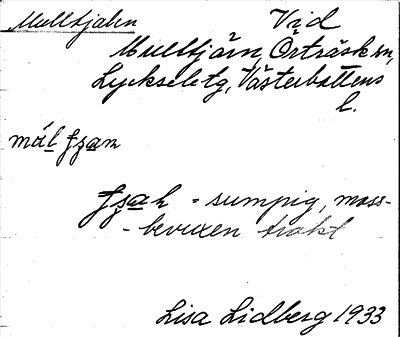 Mulltjahn
Vid
Mulltjärn, Örträsk sn,
Lycksele tg, Västerbottens
l.
tjah = sumpig, moss-
- bevuxen trakt
Lisa Lidberg 1933